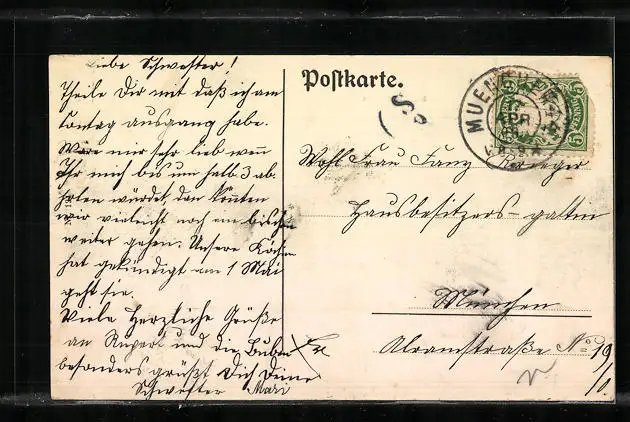 Liebe Schwester!
Theile Dir mit daß ich am
Sontag ausgang habe.
Wäre mir sehr lieb wenn
Ihr mich bis um halb 3 ab
hohlen würdet, dan könnten
wir vieleicht noch ein bischen
weiter gehen. Unsere Köchin
hat gekündigt am 1 Mai
geht sie.
Viele Herzliche Grüße
an Rupert und die Buben
besonders grüßt Dich Deine
Schwester Mari
Postkarte.
S
MUENCHEN
APR
Wohl Frau Fanz
Hausbesitzers-gattin
München
Alramstraße No 19